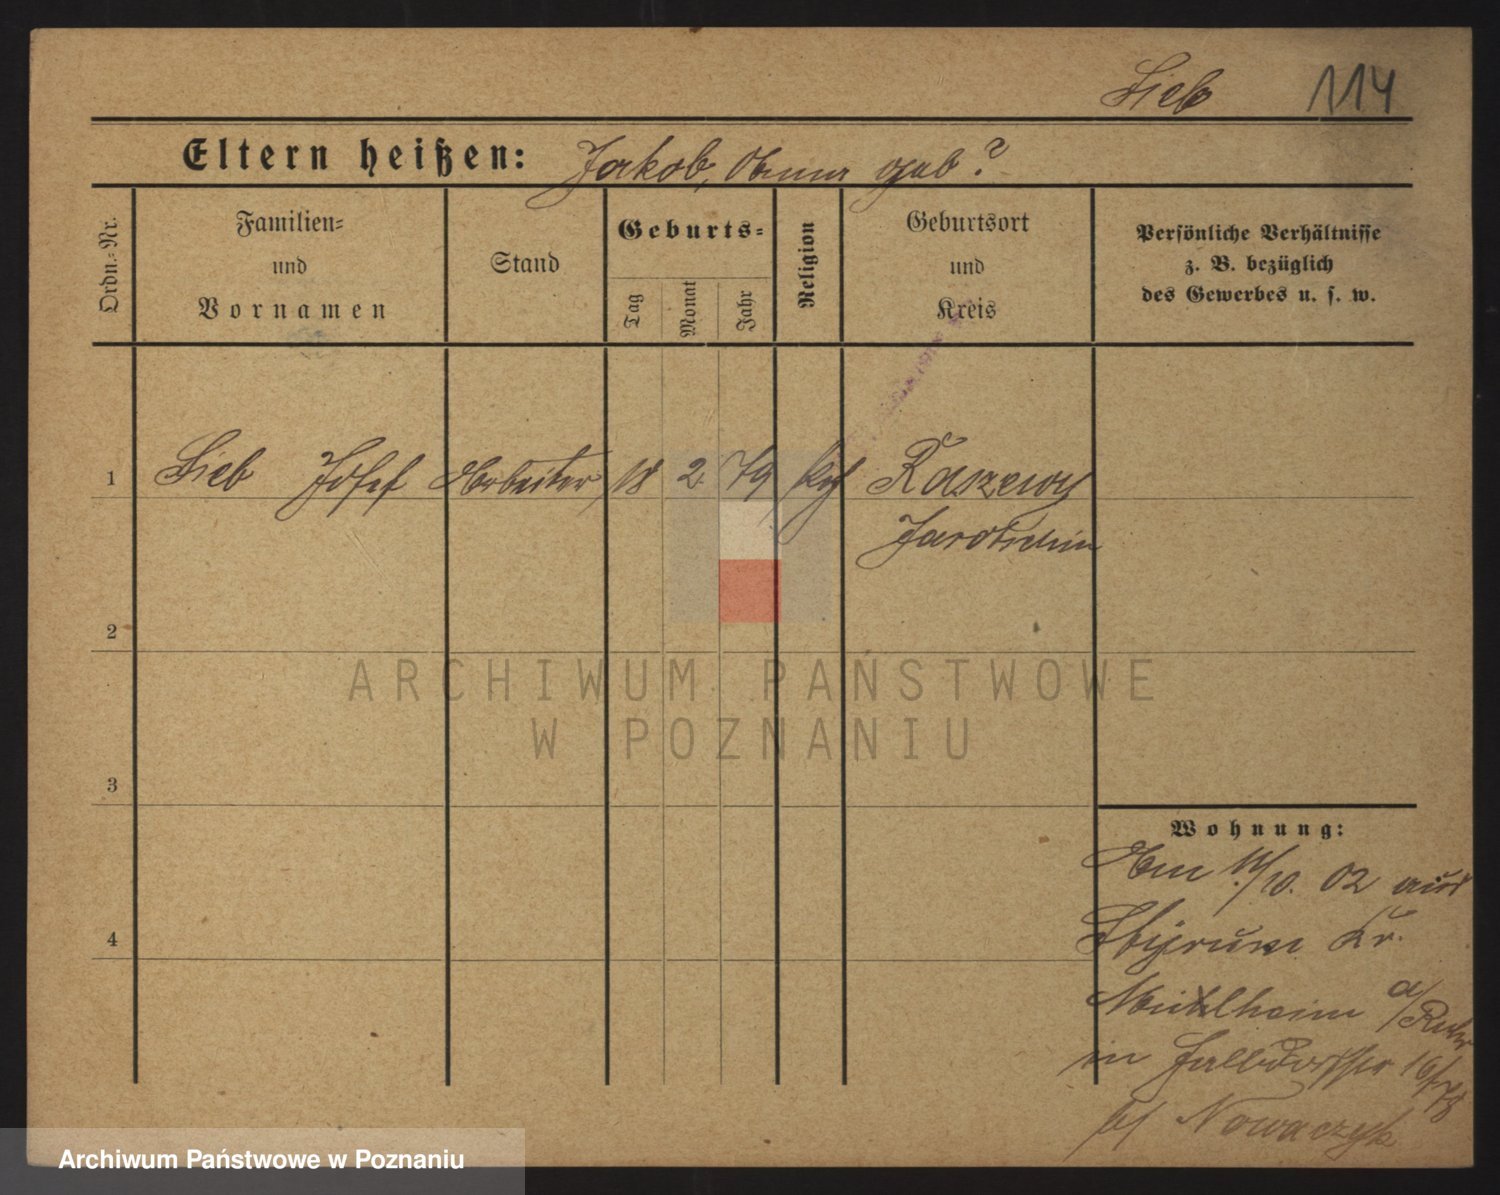 Lieb 114
Eltern heißen: Jakob, Anna geb?
Ordn.-Nr.
Familien- und Vornamen
Stand
Geburts-
Tag
Monat
Jahr
Religion
Geburtsort und Kreis
Persönliche Verhältnisse
z. B. bezüglich
des Gewerbes u. s. w.
1 Lieb Josef Arbeiter 18 2. 79 kath Raszewy
Jarotschin
2
3
4
Wohnung:
Am /10. 02 aus
Styrum Kr.
Mülheim a/Ruhr
in
b/ Nowaczyk
ARCHIWUM PAŃSTWOWE
W POZNANIU
Archiwum Państwowe w Poznaniu